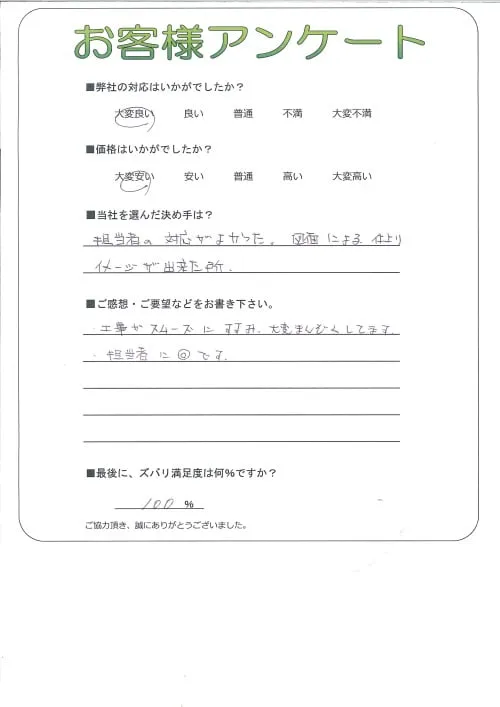 お客様アンケート
■弊社の対応はいかがでしたか？
大変良い 良い 普通 不満 大変不満
■価格はいかがでしたか？
大変安い 安い 普通 高い 大変高い
■当社を選んだ決め手は？
担当者の対応がよかった。図面による 仕上り
イメージが出来た所.
■ご感想・ご要望などをお書き下さい。
・工事がスムーズにすすみ、大変まんぞくしてます.
・担当者に◎です.
■最後に、ズバリ満足度は何％ですか？
100 ％
ご協力頂き、誠にありがとうございました。